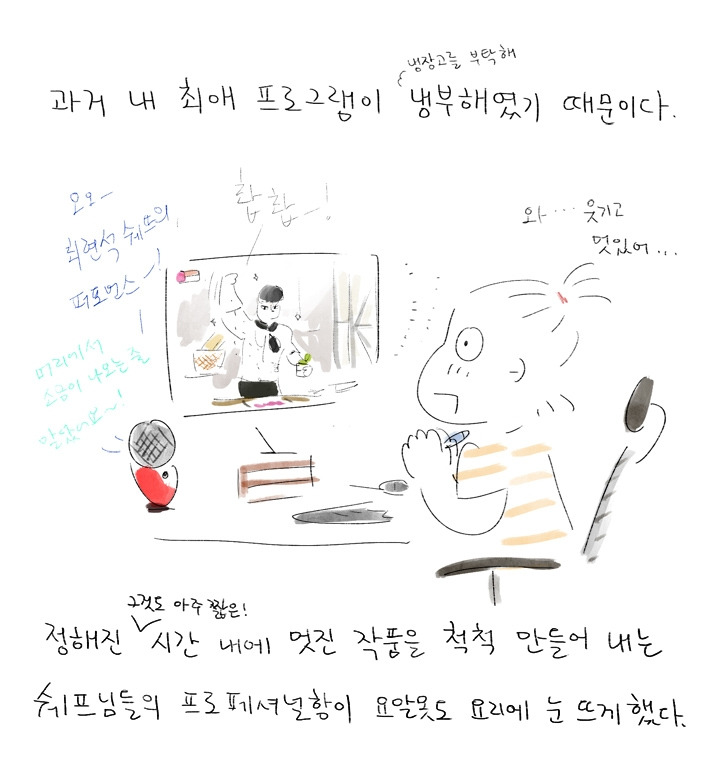 냉장고를 부탁해
과거 내 최애 프로그램이 냉부해였기 때문이다.
오오~
최현석 쉐프의
퍼포먼스~!
찹찹~!
와… 웃기고
멋있어...
머리에서
소금이 나오는 줄
알았어요~!
그것도 아주 짧은!
정해진 시간 내에 멋진 작품을 척척 만들어 내는
쉐프님들의 프로페셔널함이 요알못도 요리에 눈 뜨게 했다.